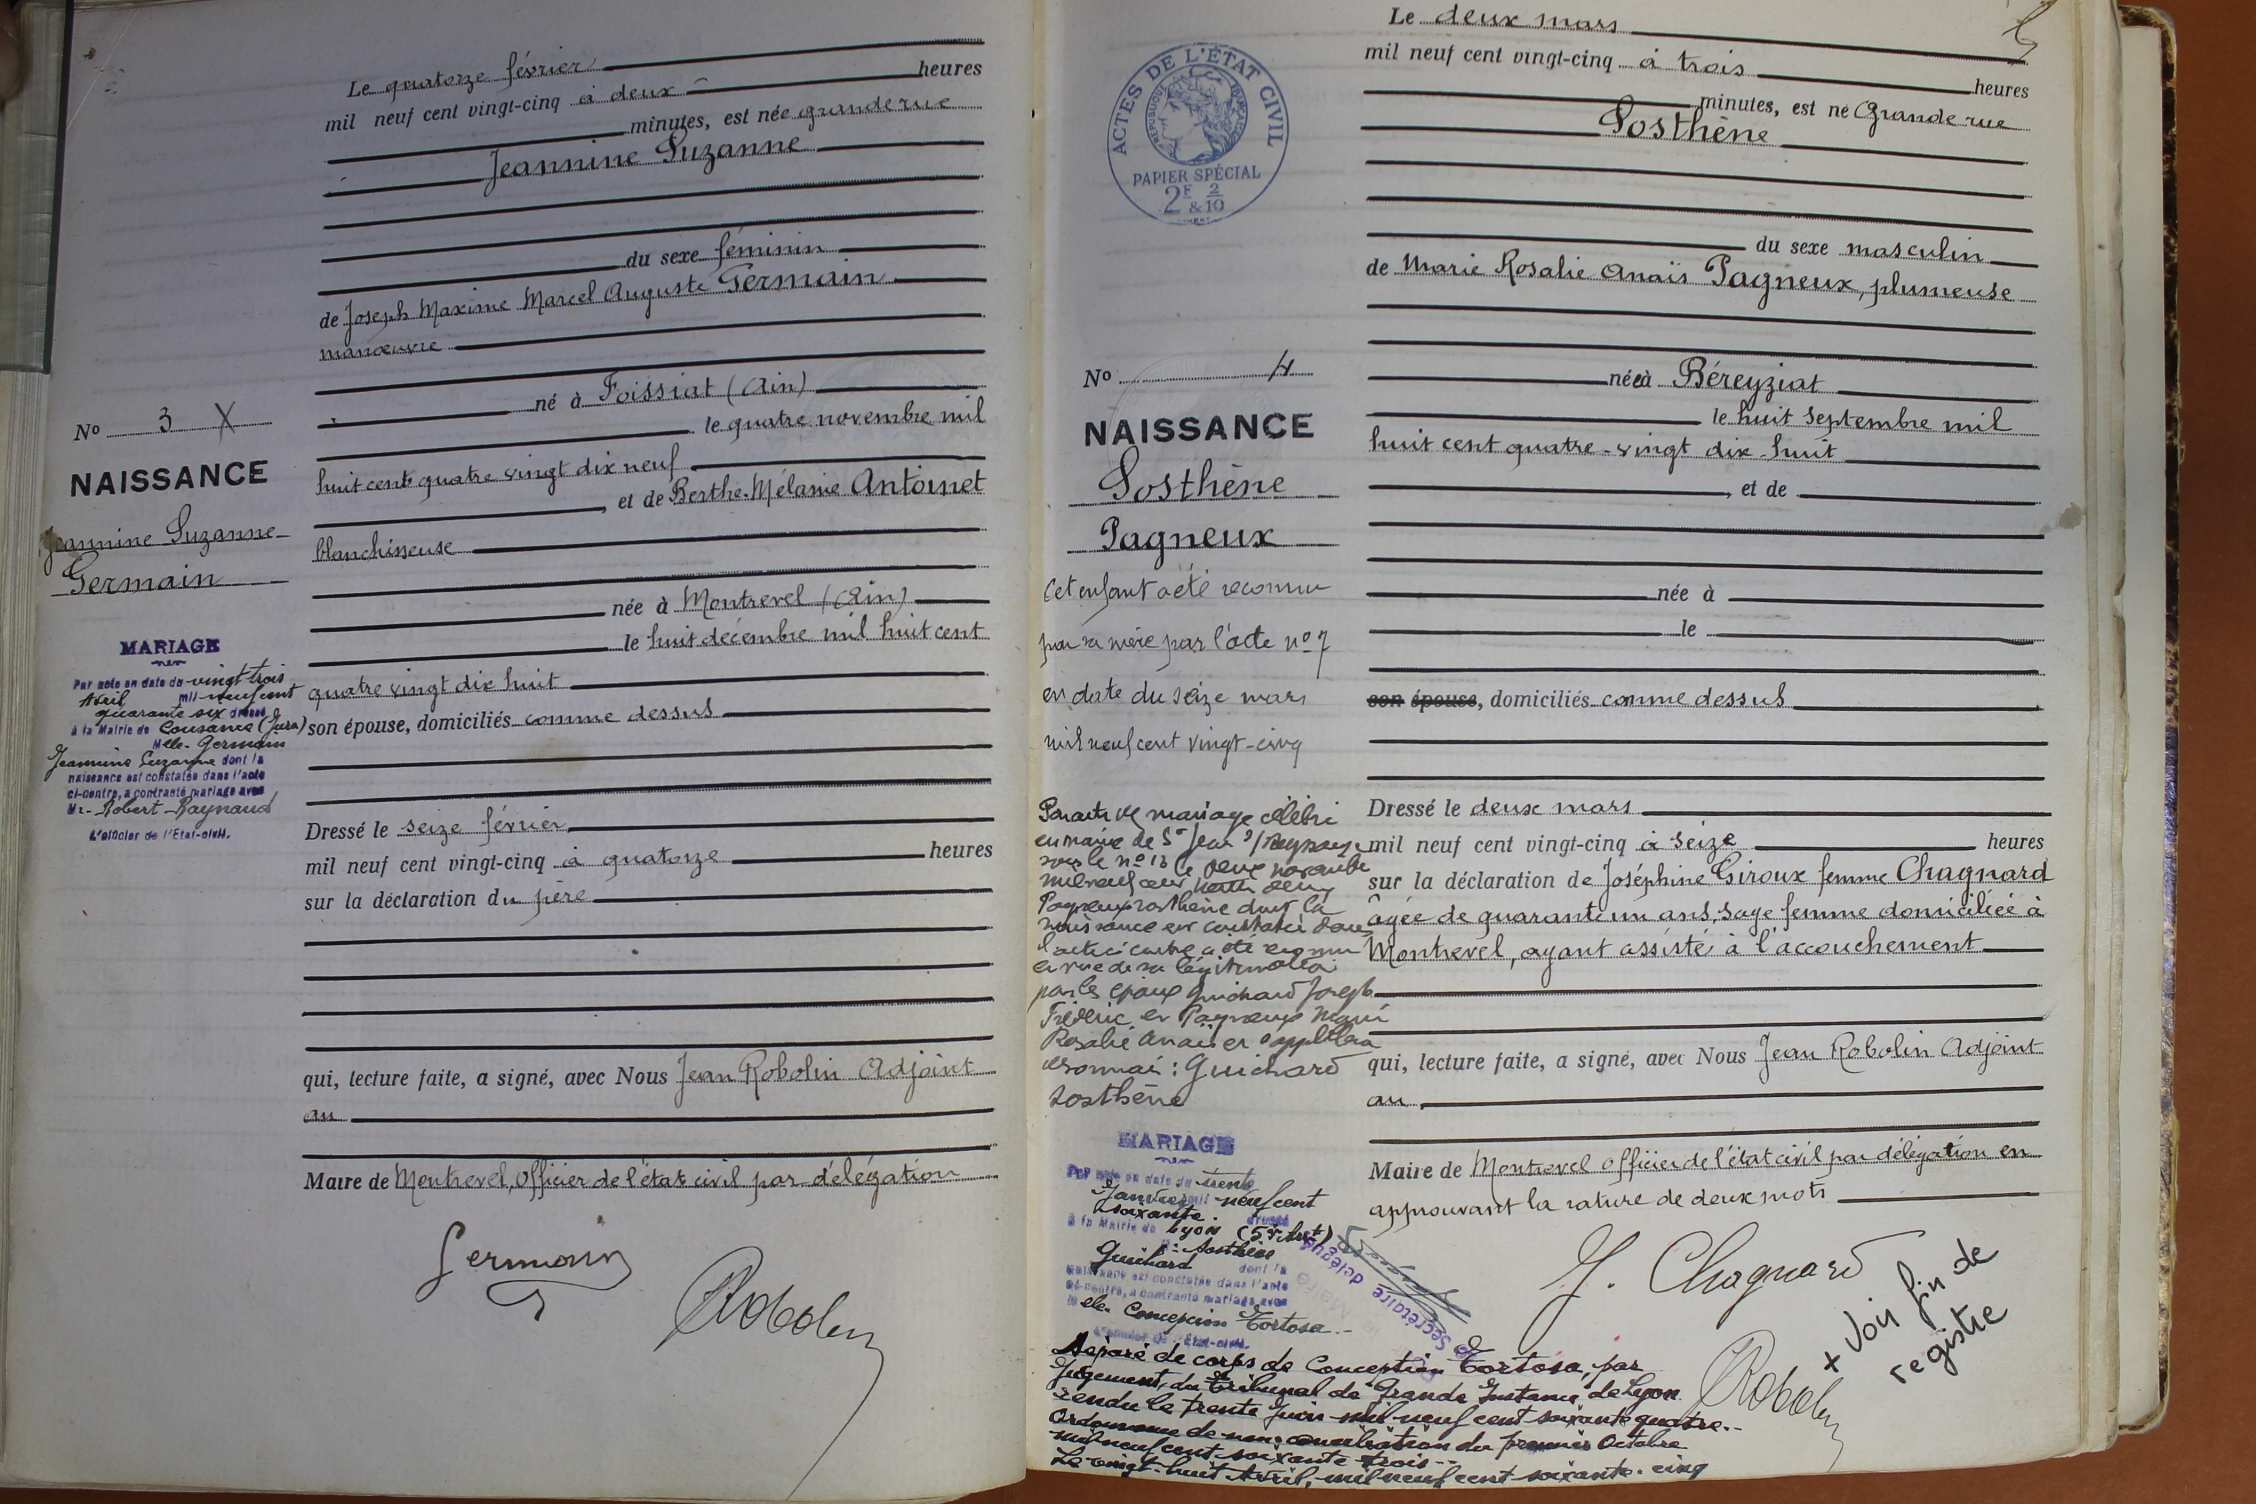 Le quatorze février
mil neuf cent vingt-cinq à deux heures
minutes, est née grande rue
Jeannine Suzanne
du sexe féminin
de Joseph Maxime Marcel Auguste Germain
manœuvre
né à Foissiat (Ain)
le quatre novembre mil
huit cent quatre vingt dix neuf
et de Berthe-Mélanie Antoinet
blanchisseuse
née à Montrevel (Ain)
le huit décembre mil huit cent
quatre vingt dix huit
son épouse, domiciliés comme dessus
Dressé le seize février
mil neuf cent vingt-cinq à quatorze heures
sur la déclaration du père
qui, lecture faite, a signé, avec Nous Jean Robolin Adjoint
au
Maire de Montrevel, Officier de l'état civil par délégation
Germain
Robolin
No 3 X
NAISSANCE
Jeannine Suzanne
Germain
MARIAGE
Par acte en date du vingt trois
Avril mil neuf cent
quarante six dressé
à la Mairie de Cousance (Jura)
Melle Germain
Jeannine Suzanne dont la
naissance est constatée dans l'acte
ci-contre, a contracté mariage avec
Mr Robert Raynaud
L'officier de l'Etat-civil.
ACTES DE L'ÉTAT CIVIL
RÉPUBLIQUE FRANÇAISE
PAPIER SPÉCIAL
2F & 2/10
Le deux mars
mil neuf cent vingt-cinq à trois heures
minutes, est né Grande rue
Sosthène
du sexe masculin
de Marie Rosalie Anaïs Pagneux, plumeuse
née à Béreyziat
le huit septembre mil
huit cent quatre-vingt dix-huit
, et de
née à
le
son épouse, domiciliés comme dessus
Dressé le deux mars
mil neuf cent vingt-cinq à seize heures
sur la déclaration de Joséphine Giroux femme Chagnard
âgée de quarante un ans, sage femme domiciliée à
Montrevel, ayant assisté à l'accouchement
qui, lecture faite, a signé, avec Nous Jean Robolin Adjoint
au
Maire de Montrevel officier de l'état civil par délégation en
approuvant la rature de deux mots
J. Chagnard
Robolin
+ Voir fin de
registre
No 4
NAISSANCE
Sosthène
Pagneux
Cet enfant a été reconnu
par sa mère par l'acte no 7
en date du seize mars
mil neuf cent vingt-cinq
Par acte de mariage célébré
en mairie de St Jean s/ Reyssouze
sous le no 13 le deux novembre
mil neuf cent
Pagneux Sosthène dont la
naissance est constatée dans
l'acte ci contre a été reconnu
en vue de sa légitimation
par les époux Guichard Joseph
Frédéric et Pagneux Marie
Rosalie Anaïs et s'appellera
désormais : Guichard
Sosthène
MARIAGE
Par acte en date du trente
Janvier mil neuf cent
soixante dressé
à la Mairie de Lyon (5e Arrt)
Mr Sosthène
Guichard dont la
naissance est constatée dans l'acte
ci-contre, a contracté mariage avec
Melle Concepcion Tortosa
L'officier de l'Etat-civil.
Secrétaire délégué
Séparé de corps de Conception Tortosa, par
jugement du Tribunal de Grande Instance de Lyon
rendu le trente Juin mil neuf cent soixante quatre.-
Ordonnance de non-conciliation du premier Octobre
mil neuf cent soixante trois --
Le vingt-huit Avril, mil neuf cent soixante-cinq